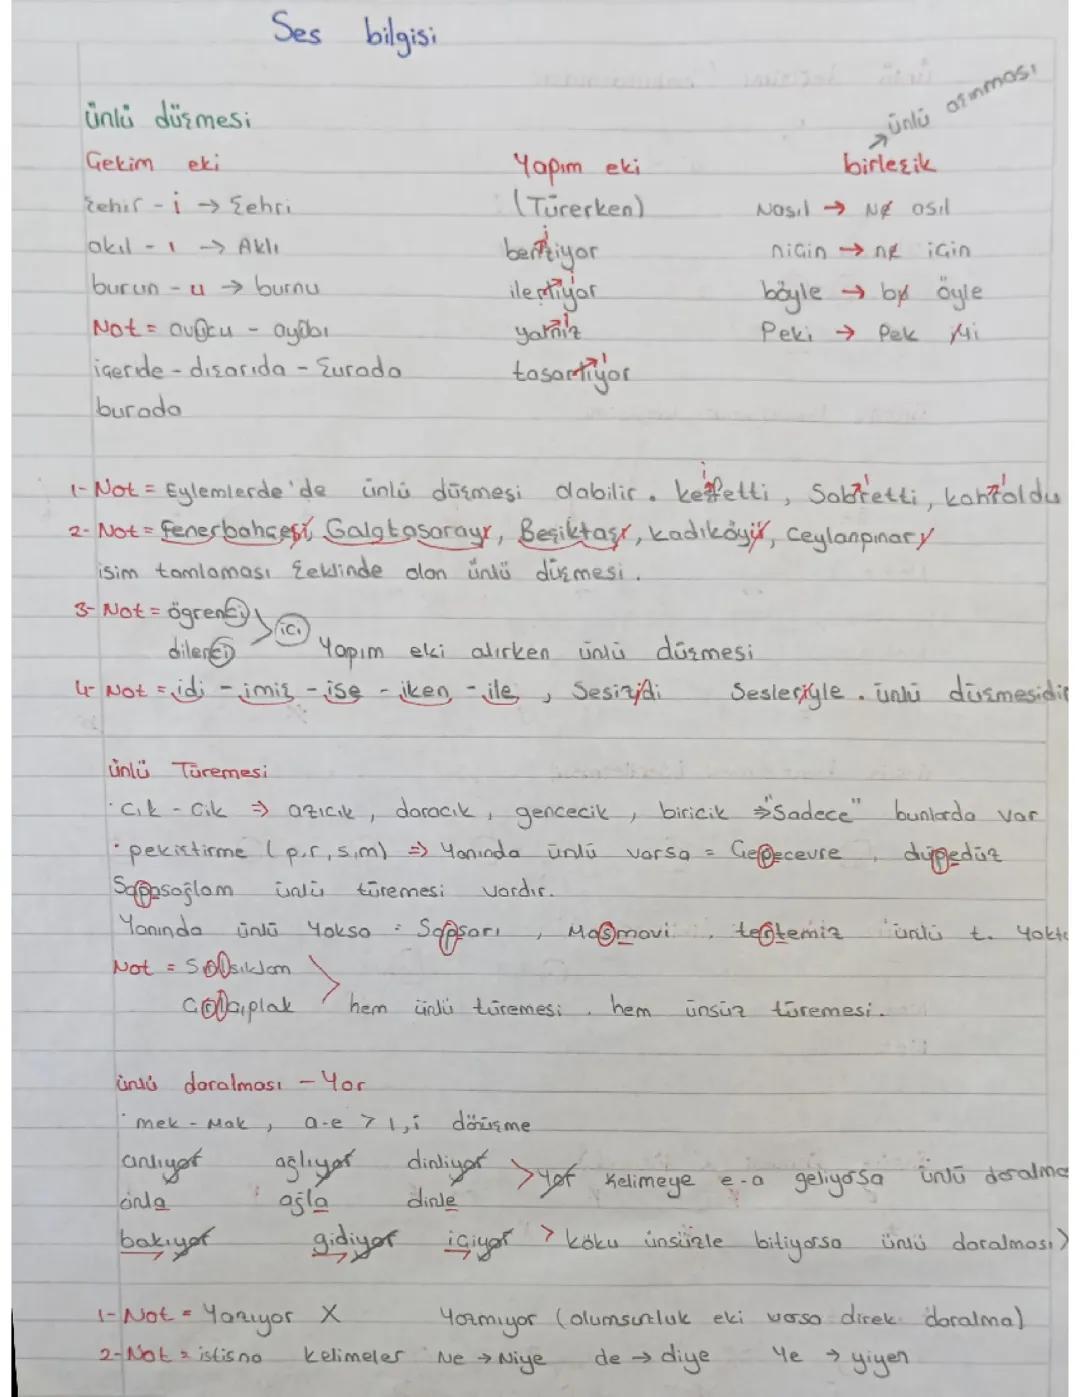 Ses bilgisi
ünlü düşmesi
ünlü aşınması
Çekim eki
Yapım eki
birleşik
şehir - i → şehri
(Türerken)
Nasıl → Ne asıl
akıl - ı → Aklı
benziyor
niçin → ne için
burun - u → burnu
ilerliyor
böyle → bu öyle
Not = avucu - ayıbı
yalnız
Peki → Pek iyi
içeride - dışarıda - şurada
tasarlıyor
burada
1- Not = Eylemlerde'de ünlü düşmesi olabilir. keşfetti, Sabretti, kahroldu
2- Not = fenerbahçesi, Galatasarayı, Beşiktaşı, kadıköyü, Ceylanpınarı
isim tamlaması şeklinde olan ünlü düşmesi.
3- Not = öğrenci
ici
dilenci
Yapım eki alırken ünlü düşmesi
4- Not = idi - imiş - ise - iken - ile, Sesizidi Sesleriyle. ünlü düşmesidir
ünlü Türemesi
· cık - cik ⇒ azıcık, daracık, gencecik, biricik ⇒ "Sadece" bunlarda var
· pekiştirme (p,r,s,m) ⇒ Yanında ünlü varsa = Çepeçevre, düpedüz
Sapasağlam ünlü türemesi vardır.
Yanında ünlü Yoksa : Sapsarı, Masmavi, tertemiz ünlü t. Yoktu
Not = Sırılsıklam
Çırılçıplak
hem ünlü türemesi, hem ünsüz türemesi.
ünlü daralması - Yor
· mek - Mak, a-e > ı,i dönüşme
anlıyor ağlıyor dinliyor > yor kelimeye e-a geliyorsa ünlü daralma
anla ağla dinle
bakıyor gidiyor içiyor > kökü ünsüzle bitiyorsa ünlü daralması
1- Not = Yazıyor X Yazmıyor (olumsuzluk eki varsa direk daralma)
2- Not = istisna kelimeler Ne → Niye de → diye Ye → yiyen